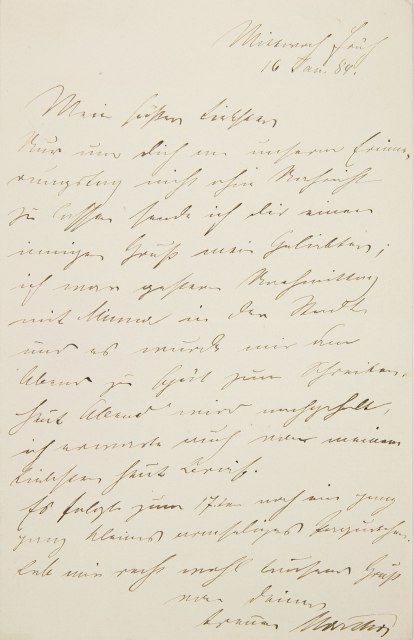 Mittwoch früh
16 Jan. 84.
Mein süßer Liebster
Nur um dich an unserm Erinne-
rungstag nicht ohne Nachricht
zu lassen sende ich dir einen
innigen Gruß mein Geliebter;
ich war gestern Nachmittag
mit Minna in der Stadt
und es wurde mir dann
Abend zu spät zum Schreiben.
Heut Abend wird nachgeholt,
ich erwarte auch von meinem
Liebsten heut Brief.
Es folgt zum 17ten noch ein ganz
ganz kleines armseliges
Leb mir recht wohl tausend Gruß
von deiner
treuen Martha